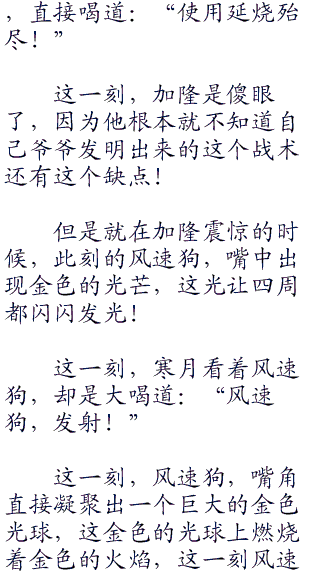 ，直接喝道：“使用延烧殆
尽！”
这一刻，加隆是傻眼
了，因为他根本就不知道自
己爷爷发明出来的这个战术
还有这个缺点！
但是就在加隆震惊的时
候，此刻的风速狗，嘴中出
现金色的光芒，这光让四周
都闪闪发光！
这一刻，寒月看着风速
狗，却是大喝道：“风速
狗，发射！”
这一刻，风速狗，嘴角
直接凝聚出一个巨大的金色
光球，这金色的光球上燃烧
着金色的火焰，这一刻风速